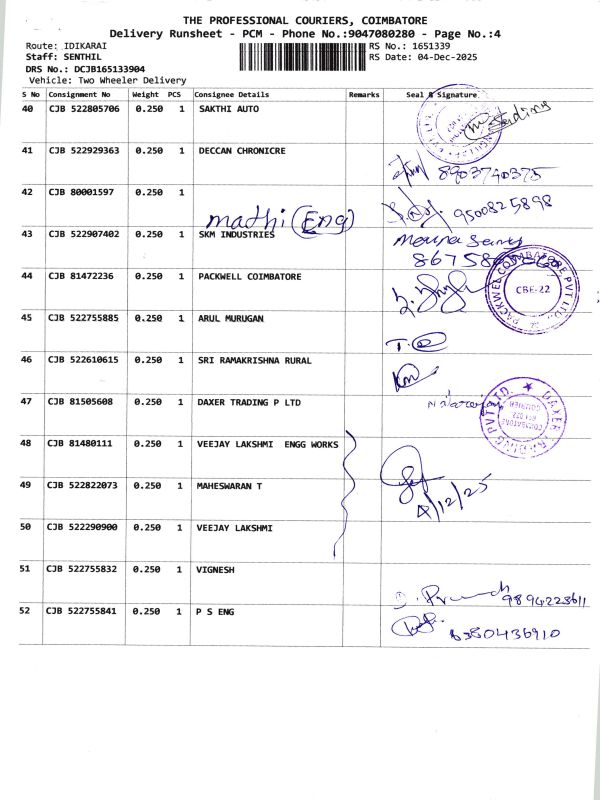 THE PROFESSIONAL COURIERS, COIMBATORE
Delivery Runsheet - PCM - Phone No.:9047080280 - Page No.:4
Route: IDIKARAI RS No.: 1651339
Staff: SENTHIL RS Date: 04-Dec-2025
DRS No.: DCJB165133904
Vehicle: Two Wheeler Delivery
S No Consignment No Weight PCS Consignee Details Remarks Seal & Signature
40 CJB 522805706 0.250 1 SAKTHI AUTO
41 CJB 522929363 0.250 1 DECCAN CHRONICRE
8903740375
42 CJB 80001597 0.250 1
mathi (Eng) 9500825898
43 CJB 522907402 0.250 1 SKM INDUSTRIES
44 CJB 81472236 0.250 1 PACKWELL COIMBATORE
PACKWELL COIMBATORE PVT LTD. CBE-22
45 CJB 522755885 0.250 1 ARUL MURUGAN
46 CJB 522610615 0.250 1 SRI RAMAKRISHNA RURAL
47 CJB 81505608 0.250 1 DAXER TRADING P LTD
DAXER TRADING PVT LTD COIMBATORE
48 CJB 81480111 0.250 1 VEEJAY LAKSHMI ENGG WORKS
49 CJB 522822073 0.250 1 MAHESWARAN T
4/12/25
50 CJB 522290900 0.250 1 VEEJAY LAKSHMI
51 CJB 522755832 0.250 1 VIGNESH
9894223611
52 CJB 522755841 0.250 1 P S ENG
6380436910